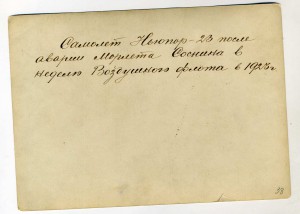 Самолет Ньюпор-23 после
аварии Морлета Соснина в
неделю Воздушного флота в 1923 г.